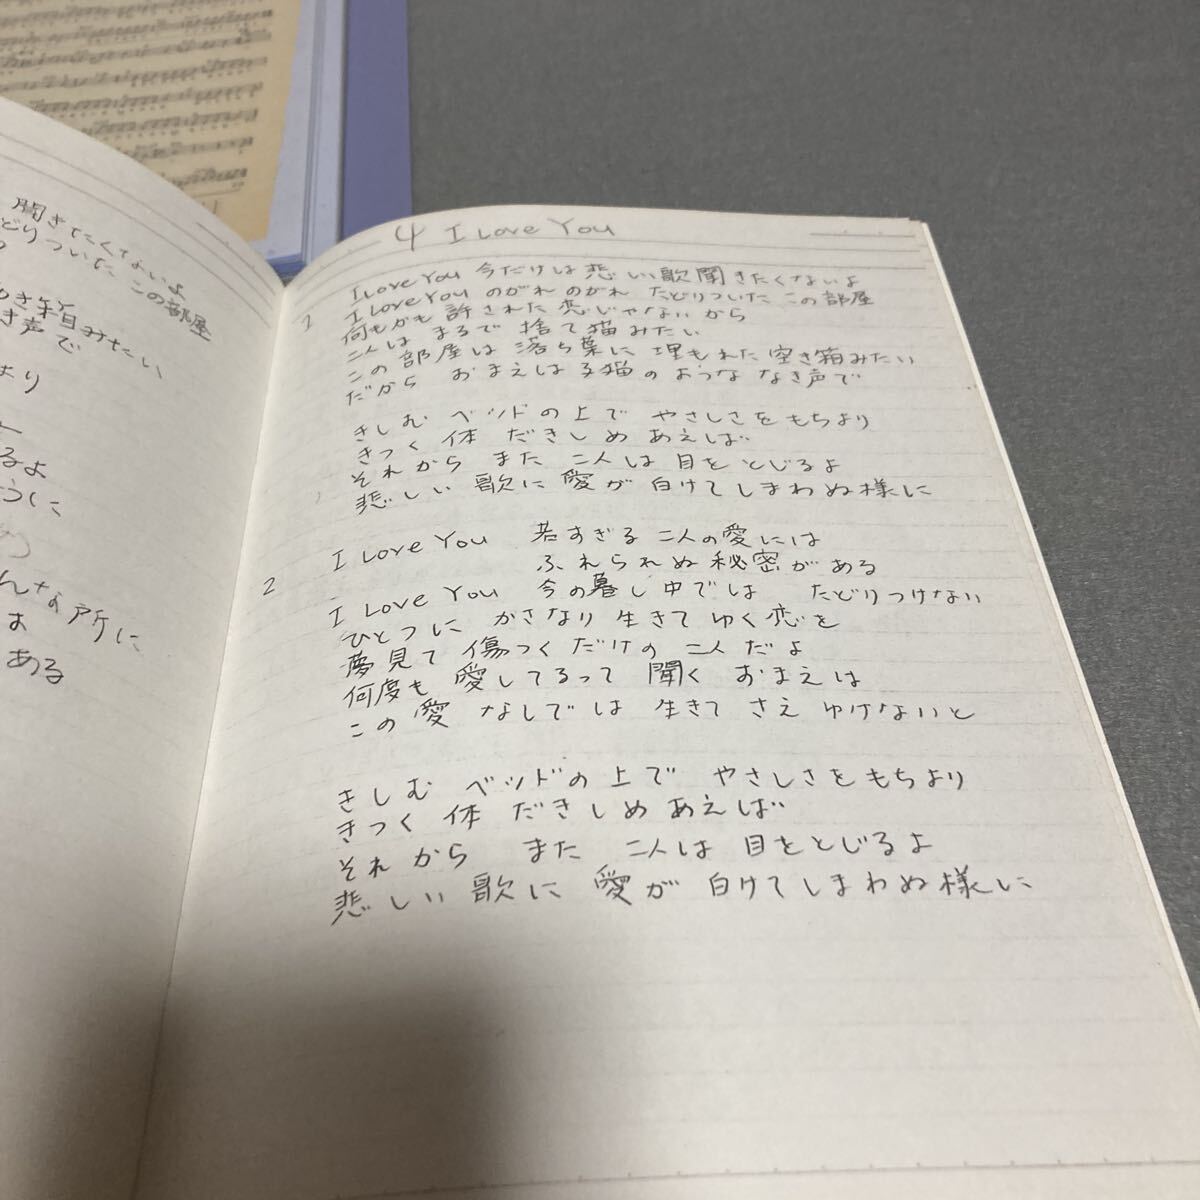 聞きたくないよ
どりついた この部屋
き箱みたい
き声で
より
るよ
うに
んな所に
は
ある
4 I Love You
I Love You 今だけは 悲しい歌聞きたくないよ
1 I Love You のがれ のがれ たどりついた この部屋
何もかも 許された 恋じゃないから
二人は まるで 捨て猫みたい
この部屋は 落ち葉に 埋もれた 空き箱みたい
だから おまえは 子猫の ような なき声で
きしむ ベッドの上で やさしさを もちより
きつく 体 だきしめ あえば
それから また 二人は 目を とじるよ
悲しい 歌に 愛が 白けて しまわぬ様に
I Love You 若すぎる 二人の愛には
ふれられぬ 秘密が ある
2 I Love You 今の暮し中では たどりつけない
ひとつに かさなり 生きて ゆく恋を
夢見て 傷つくだけの 二人だよ
何度も 愛してるって 聞く おまえは
この愛 なしでは 生きて さえ ゆけないと
きしむ ベッドの上で やさしさを もちより
きつく 体 だきしめ あえば
それから また 二人は 目をとじるよ
悲しい 歌に 愛が 白けて しまわぬ様に